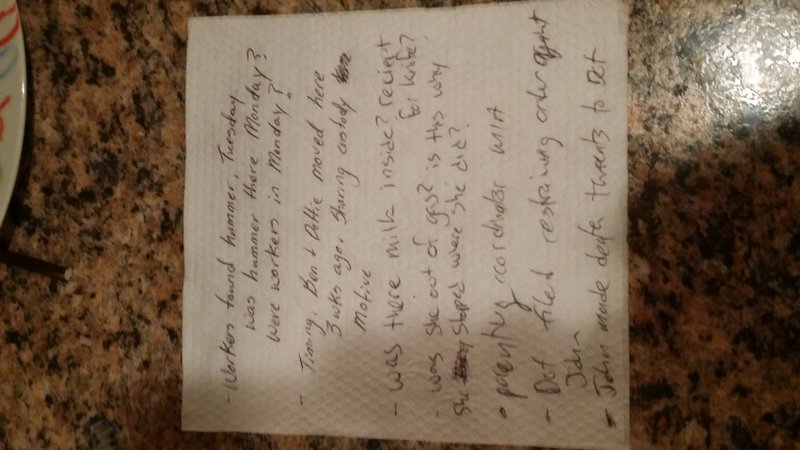 - Workers found hummer, Tuesday.
was hummer there Monday?
were workers in Monday?
- Timing. Ben + Dottie moved here
3 wks ago. Sharing custody
Motive
- was there milk inside? reciept
for knife?
- was she out of gas? is this why
she stopped where she did?
- parenting coordinator MIA
- Dot filed restraining order against
John
- John made death threats to Dot